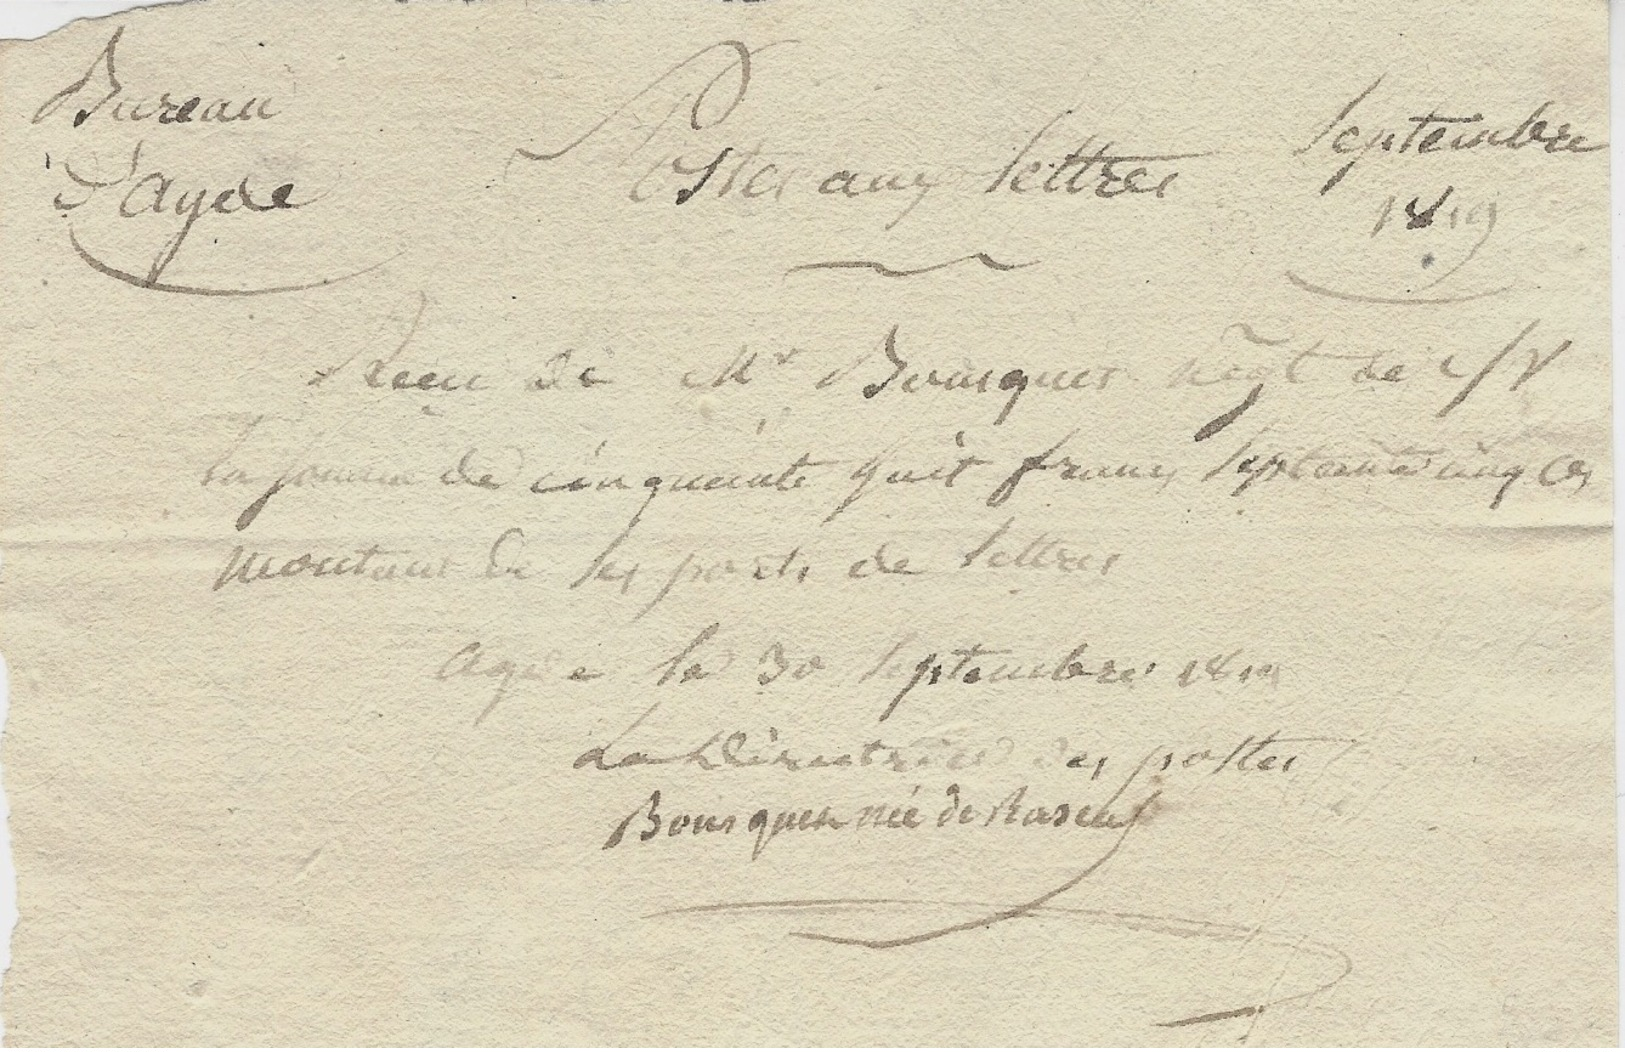 Bureau
D'agde
Postes aux lettres
Septembre
1819
Reçu de Mr Bousquet négt de c/V
la somme de cinquante huit francs Septante cinq Ces
montant de ses ports de lettres
agde le 30 Septembre 1819
La Directrice des postes
Bousquet née de